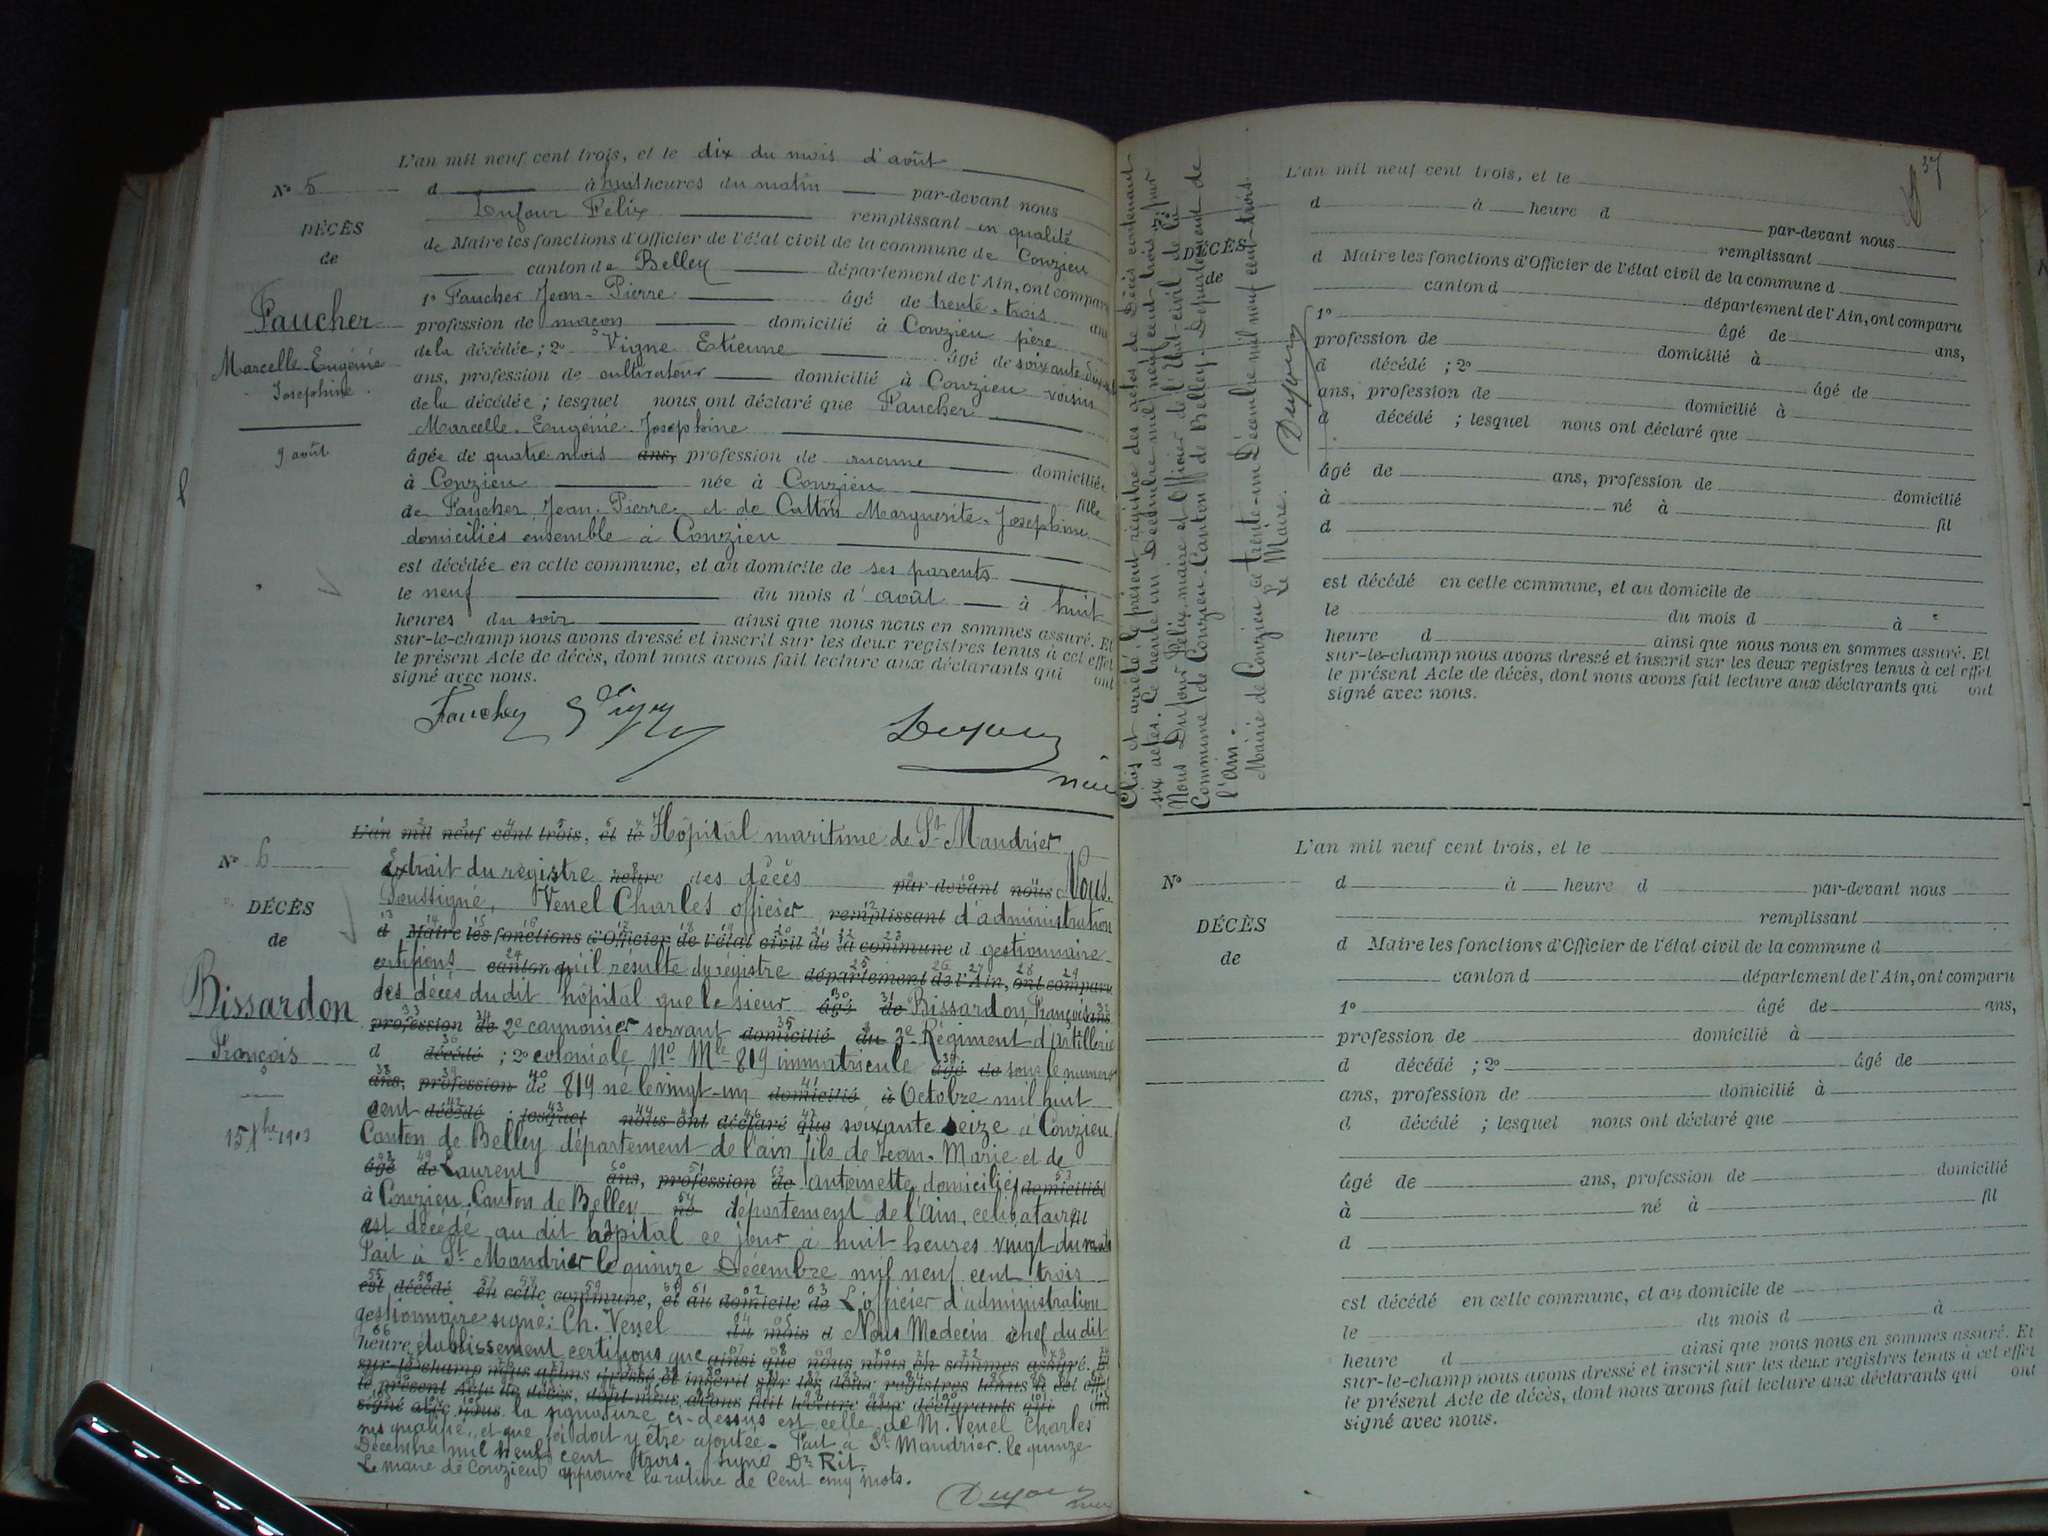 L'an mil neuf cent trois, et le dix du mois d'août
N° 5
d à huit heures du matin par-devant nous
Dufour Félix remplissant en qualité
DÉCÈS
de
de Maire les fonctions d'Officier de l'état civil de la commune de Conzieu
canton de Belley département de l'Ain, ont comparu
1° Faucher Jean-Pierre âgé de trente-trois ans
Faucher
Marcelle-Eugénie
Josephine
9 août
profession de maçon domicilié à Conzieu père
de la décédée ; 2° Vigne Etienne âgé de soixante
ans, profession de cultivateur domicilié à Conzieu voisin
de la décédée ; lesquel nous ont déclaré que Faucher
Marcelle-Eugénie-Josephine
âgée de quatre mois ans, profession de aucune domiciliée
à Conzieu née à Conzieu fille
de Faucher Jean-Pierre et de Cattin Marguerite-Josephine
domiciliés ensemble à Conzieu
est décédée en cette commune, et au domicile de ses parents
le neuf du mois d'août à huit
heures du soir ainsi que nous nous en sommes assuré. Et
sur-le-champ nous avons dressé et inscrit sur les deux registres tenus à cet effet
le présent Acte de décès, dont nous avons fait lecture aux déclarants qui ont
signé avec nous.
Faucher Vigne Dufour
L'an mil neuf cent trois, et le Hôpital maritime de St Mandrier
N° 6
DÉCÈS
de
Bissardon
François
15 Xbre 1903
Extrait du registre heure des décès par devant nous Nous
Soussigné, Venel Charles officier remplissant d'administration
d Maire les fonctions d'Officier de l'état civil de la commune d gestionnaire
certifions canton qu'il résulte du registre département de l'Ain, ont comparu
des décès du dit hôpital que le sieur âgé de Bissardon, François ans
profession de 2e cannonier servant domicilié du 3e Régiment d'artillerie
d décédé ; 2° coloniale N° Mle 819 immatricule âgé de sous le numero
ans, profession de 819 né le vingt-un domicilié à Octobre mil huit
cent décédé ; lesquel nous ont déclaré que soixante seize à Conzieu
Canton de Belley département de l'ain fils de Jean-Marie et de
âgé de Laurent ans, profession de antoinette domiciliés domiciliés
à Conzieu Canton de Belley né département de l'ain, celibataire
est décédé au dit hôpital ce jour à huit heures vingt du matin
Fait à St Mandrier le quinze Décembre mil neuf cent trois
est décédé en cette commune, et au domicile de L'officier d'administration
gestionnaire signé: Ch. Venel du mois d Nous Medecin chef du dit
heure établissement certifions que ainsi que nous nous en sommes assuré. Et
sur-le-champ nous avons dressé et inscrit sur les deux registres tenus à cet effet
le présent Acte de décès, dont nous avons fait lecture aux déclarants qui ont
signé avec nous. la signature ci-dessus est celle de M. Venel Charles
sus qualifié, et que foi doit y être ajoutée. Fait à St Mandrier. le quinze
Décembre mil neuf cent trois. signé Dr Rit.
Le maire de Conzieu approuve la rature de cent cinq mots.
Dufour
Clos et arrêté, le présent registre des actes de Décès contenant
six actes. Ce trente un Décembre mil neuf cent trois, par
Nous Dufour Félix maire et Officier de l'Etat-civil de la
Commune de Conzieu Canton de Belley. Département de
l'ain.
Mairie de Conzieu ce trente-un Décembre mil neuf cent-trois.
Le Maire.
Dufour
37
L'an mil neuf cent trois, et le
d à heure d par-devant nous
remplissant
DÉCÈS
de
d Maire les fonctions d'Officier de l'état civil de la commune d
canton d département de l'Ain, ont comparu
1° âgé de ans,
profession de domicilié à
d décédé ; 2° âgé de
ans, profession de domicilié à
d décédé ; lesquel nous ont déclaré que
âgé de ans, profession de domicilié
à né à fil
d
est décédé en cette commune, et au domicile de
le du mois d à
heure d ainsi que nous nous en sommes assuré. Et
sur-le-champ nous avons dressé et inscrit sur les deux registres tenus à cet effet
le présent Acte de décès, dont nous avons fait lecture aux déclarants qui ont
signé avec nous.
L'an mil neuf cent trois, et le
N°
d à heure d par-devant nous
remplissant
DÉCÈS
de
d Maire les fonctions d'Officier de l'état civil de la commune d
canton d département de l'Ain, ont comparu
1° âgé de ans,
profession de domicilié à
d décédé ; 2° âgé de
ans, profession de domicilié à
d décédé ; lesquel nous ont déclaré que
âgé de ans, profession de domicilié
à né à fil
d
est décédé en cette commune, et au domicile de
le du mois d à
heure d ainsi que nous nous en sommes assuré. Et
sur-le-champ nous avons dressé et inscrit sur les deux registres tenus à cet effet
le présent Acte de décès, dont nous avons fait lecture aux déclarants qui ont
signé avec nous.